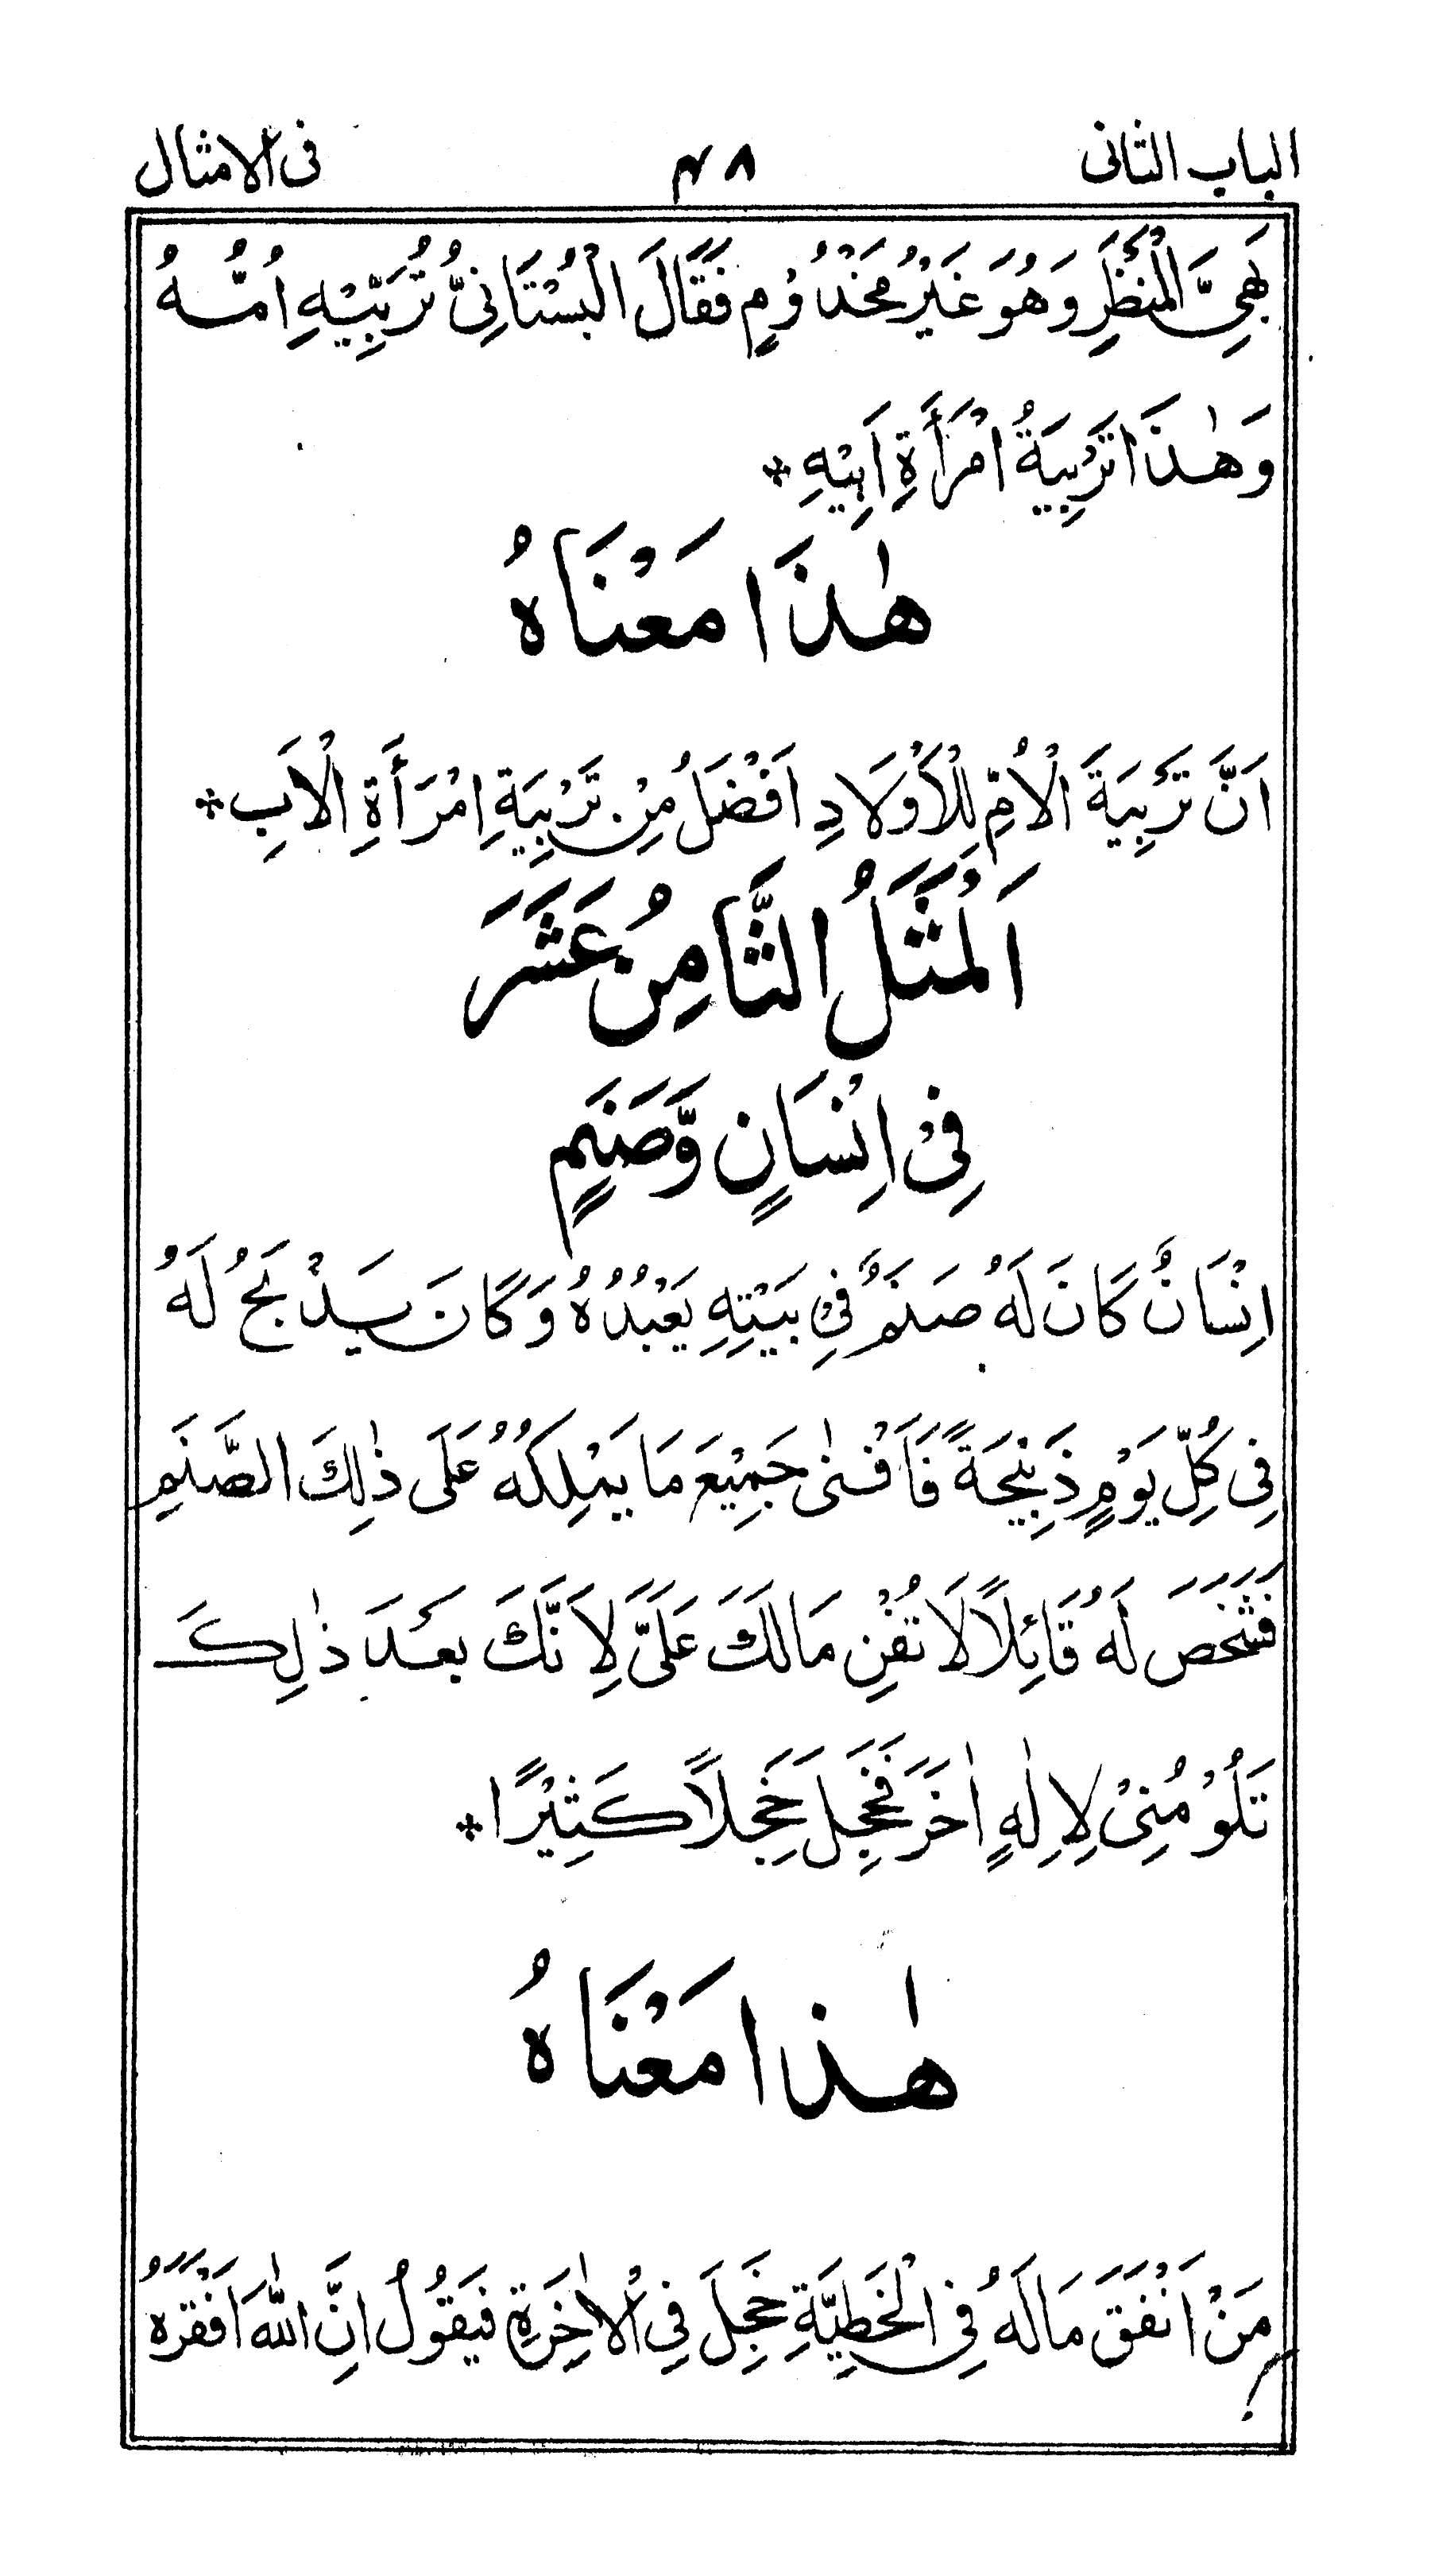 الباب الثانى ٤٨ فى الامثال
بَهِىَّ الْمَنْظَرِ وَهُوَ غَيْرُ مَخْدُوْمٍ فَقَالَ الْبُسْتَانِىُّ تُرَبِّيْهِ اُمُّهُ
وَهٰذَا تَرْبِيَةُ امْرَأَةِ اَبِيْهِ *
هٰذَا مَعْنَاهُ
اَنَّ تَرْبِيَةَ الْاُمِّ لِلْاَوْلَادِ اَفْضَلُ مِنْ تَرْبِيَةِ امْرَأَةِ الْاَبِ *
اَلْمَثَلُ الثَّامِنُ عَشَرَ
فِىْ اِنْسَانٍ وَّصَنَمٍ
اِنْسَانٌ كَانَ لَهُ صَنَمٌ فِىْ بَيْتِهِ يَعْبُدُهُ وَكَانَ يَذْبَحُ لَهُ
فِى كُلِّ يَوْمٍ ذَبِيْحَةً فَاَفْنٰى جَمِيْعَ مَا يَمْلِكُهُ عَلَى ذٰلِكَ الصَّنَمِ
فَشَخَصَ لَهُ قَائِلًا لَا تُفْنِ مَالَكَ عَلَىَّ لِاَنَّكَ بَعْدَ ذٰلِكَ
تَلُوْمُنِىْ لِاِلٰهٍ اٰخَرَ فَخَجِلَ خَجِلًا كَثِيْرًا *
هٰذا مَعْنَاهُ
مَنْ اَنْفَقَ مَالَهُ فِى الْخَطِيَّةِ خَجِلَ فِى الْاٰخِرَةِ فَيَقُوْلُ اِنَّ اللّٰهَ اَفْقَرَهُ